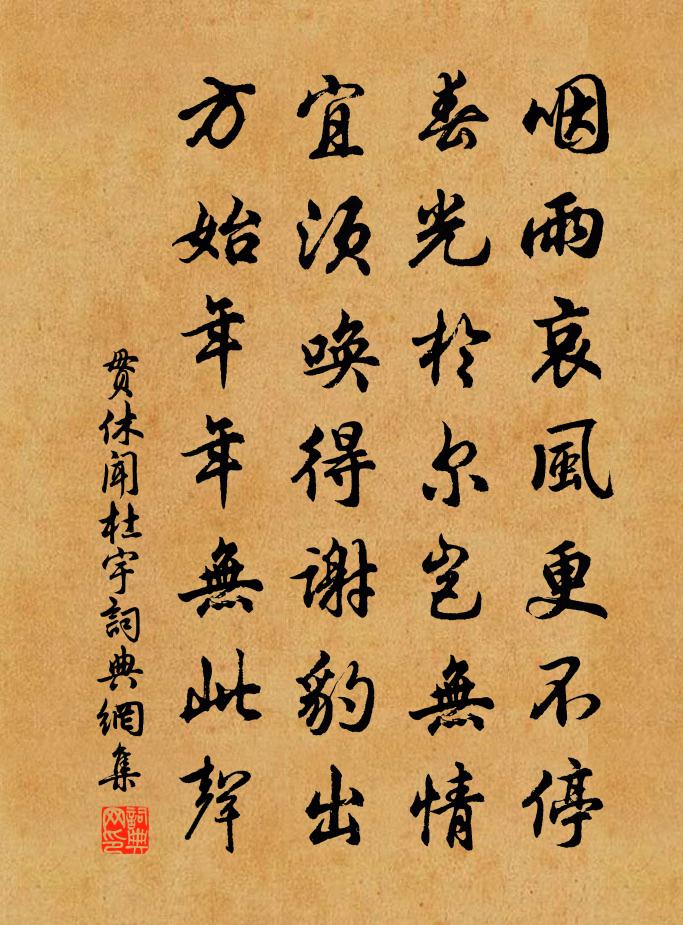 咽雨哀風更不停
春光於尔岂無情
宜須喚得謝豹出
方始年年無此聲
貫休聞杜宇詞典網集
詞典网印